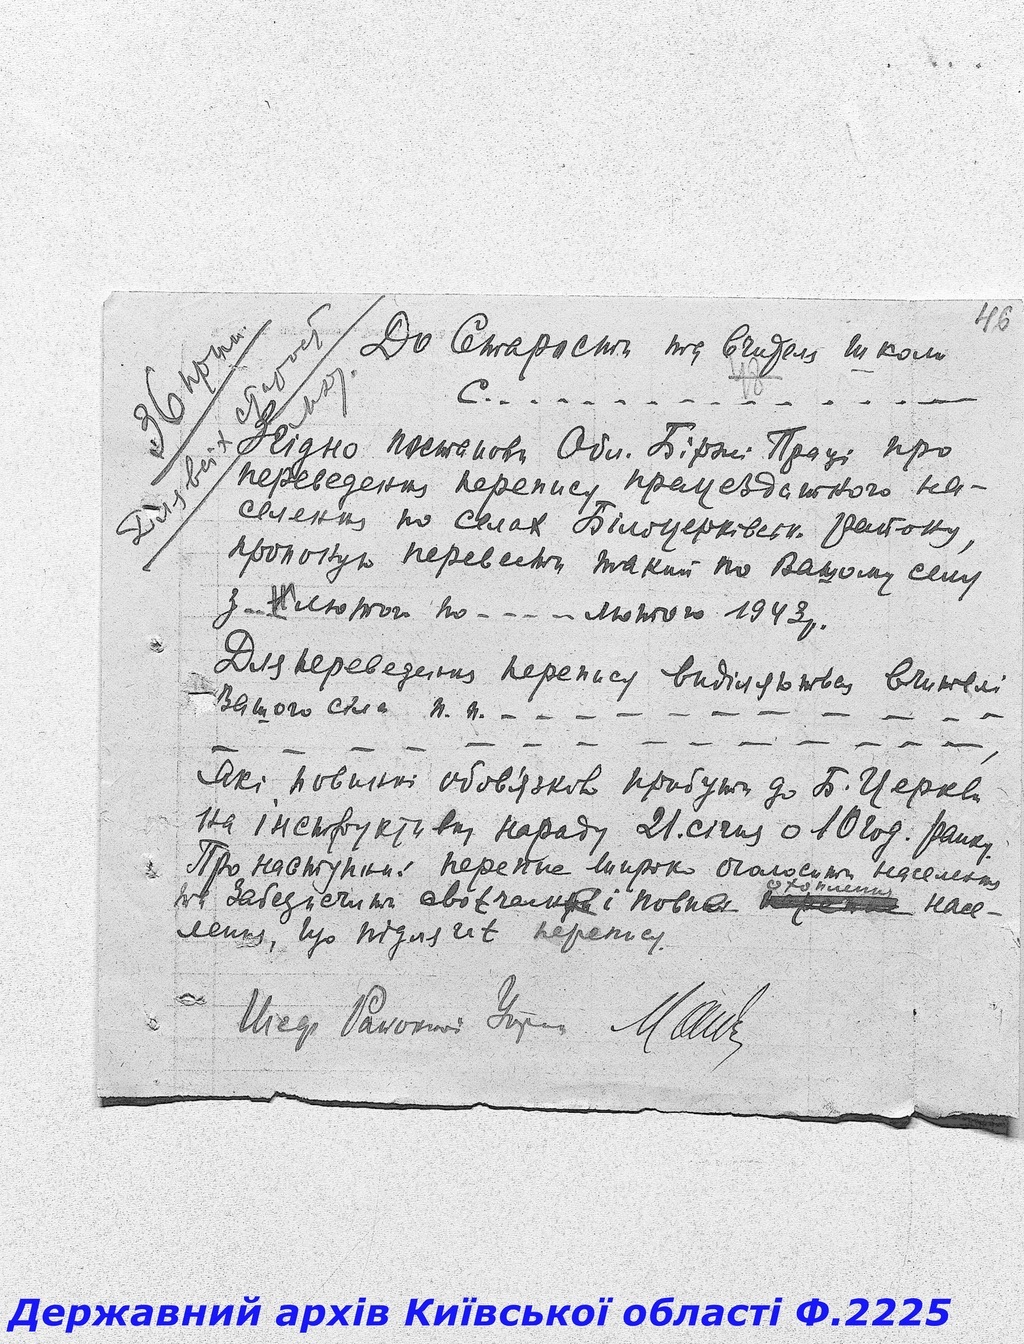 46
36 прим.
Для всіх старост
До Старости та вчителя школи
48
с.
Згідно постанови Обл. Біржі Праці про
переведення перепису працездатного на-
селення по селах Білоцерківськ. району,
пропоную перевести такий по Вашому селу
з лютого по лютого 1943 р.
Для переведення перепису виділяються вчителі
Вашого села п. п.
які повинні обов'язково прибути до Б. Церкви
на інструктивну нараду 21. січня о 10 год. ранку.
Про наступний перепис широко оголосити населення
та забезпечити своєчасний і повне охоплення насе-
лення, що підлягає перепису.
Шеф Районної Управи
Державний архів Київської області Ф.2225